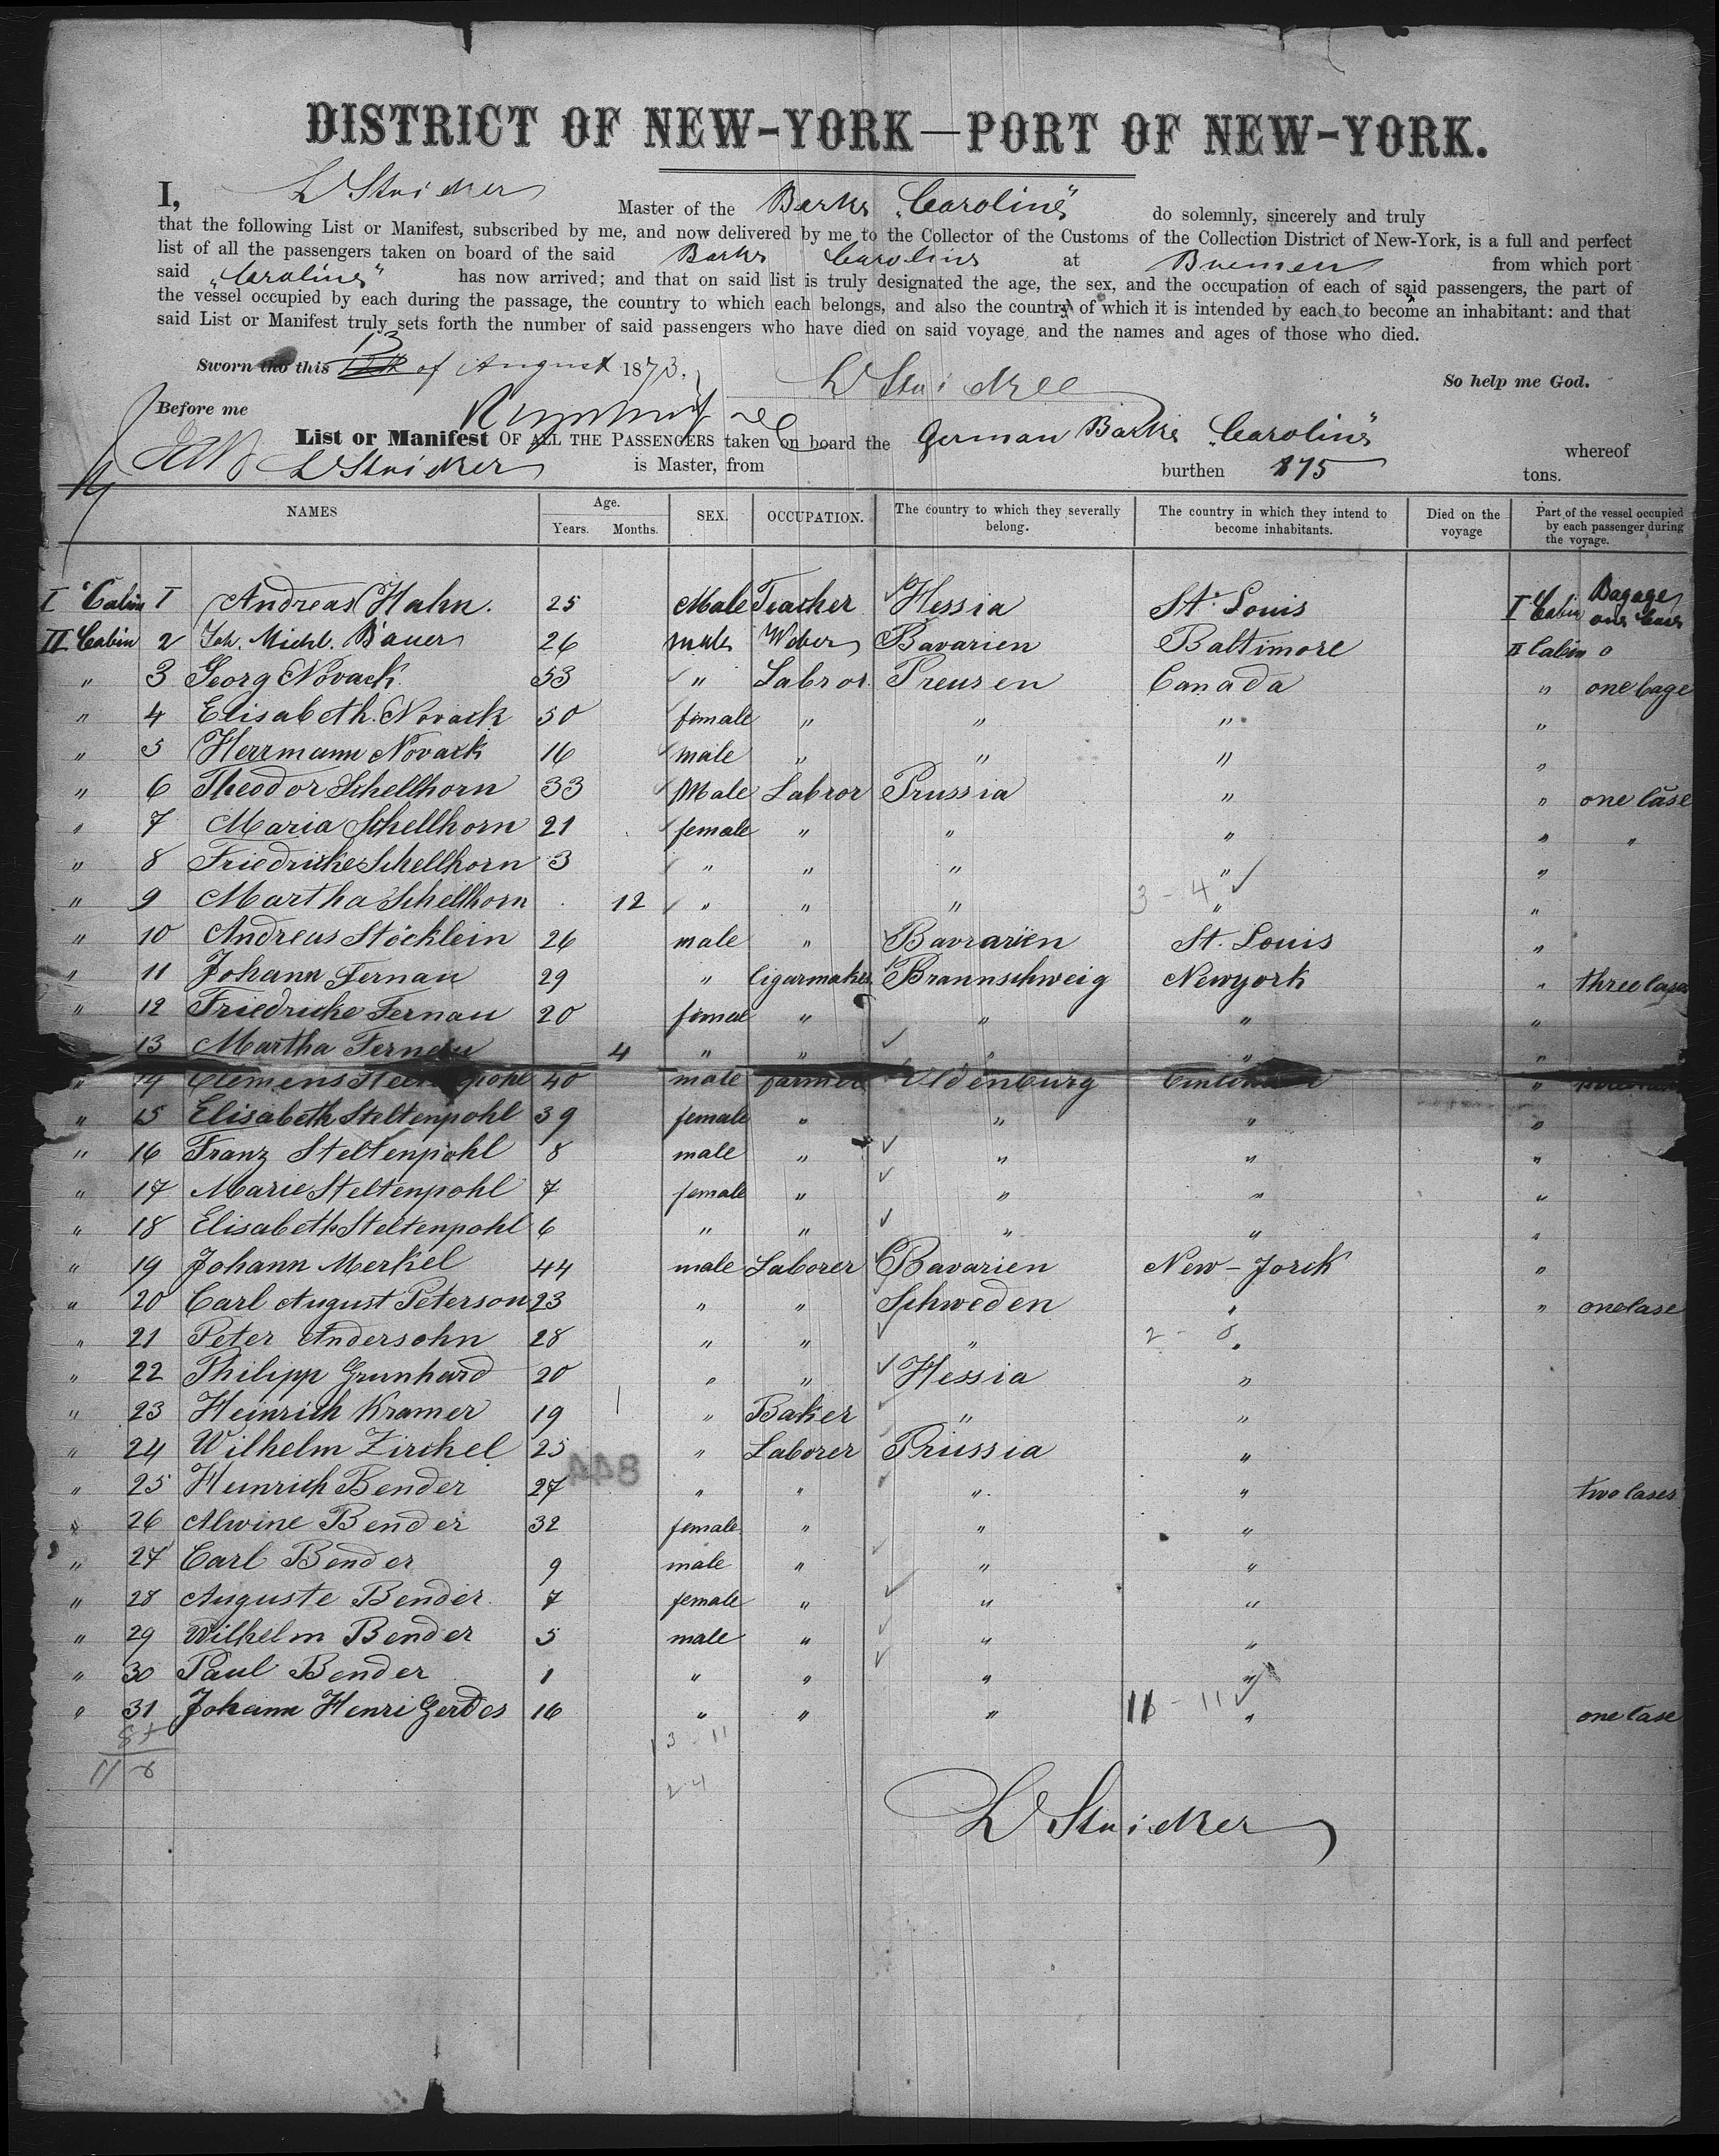 DISTRICT OF NEW-YORK—PORT OF NEW-YORK.
I, Master of the Barke "Caroline" do solemnly, sincerely and truly
that the following List or Manifest, subscribed by me, and now delivered by me to the Collector of the Customs of the Collection District of New-York, is a full and perfect
list of all the passengers taken on board of the said Barke Caroline at Bremen from which port
said "Caroline" has now arrived; and that on said list is truly designated the age, the sex, and the occupation of each of said passengers, the part of
the vessel occupied by each during the passage, the country to which each belongs, and also the country of which it is intended by each to become an inhabitant: and that
said List or Manifest truly sets forth the number of said passengers who have died on said voyage, and the names and ages of those who died.
Sworn to this 13 of August 1873. So help me God.
Before me
List or Manifest OF ALL THE PASSENGERS taken on board the German Barke "Caroline" whereof
is Master, from burthen 875 tons.
NAMES Age. Years. Months. SEX. OCCUPATION. The country to which they severally belong. The country in which they intend to become inhabitants. Died on the voyage Part of the vessel occupied by each passenger during the voyage.
I Cabin 1 Andreas Hahn. 25 Male Teacher Hessia St. Louis I Cabin Bagage one Case
II Cabin 2 Joh. Michl. Bauer 26 male Weber Bavarien Baltimore II Cabin 0
" 3 Georg Novack 53 " Labror Preusen Canada " one bage
" 4 Elisabeth Novack 50 female " " " "
" 5 Herrmann Novack 16 male " " " "
" 6 Theodor Schellhorn 33 Male Labror Prussia " " one Case
" 7 Maria Schellhorn 21 female " " " " "
" 8 Friedricke Schellhorn 3 " " " " "
" 9 Martha Schellhorn 12 " " " " "
3 - 4
" 10 Andreas Stöcklein 26 male " Bavrarien St. Louis "
" 11 Johann Fernau 29 " Cigarmaker Braunschweig Newyork " three cases
" 12 Friedricke Fernau 20 " " " "
13 Martha Fernau 4 " " " " "
" 14 Clemens Steltenpohl 40 male farmer Oldenburg "
" 15 Elisabeth Steltenpohl 39 female " " " "
" 16 Franz Steltenpohl 8 male " " " "
" 17 Marie Steltenpohl 7 female " " " "
" 18 Elisabeth Steltenpohl 6 " " " " "
" 19 Johann Merkel 44 male Laborer Bavarien New-Jorck "
" 20 Carl August Peterson 23 " " Schweden " " one Case
" 21 Peter Andersohn 28 " " " "
2 - 8
" 22 Philipp Grunhard 20 " " Hessia "
" 23 Heinrich Kramer 19 " Baker " "
" 24 Wilhelm Zirckel 25 " Laborer Prussia "
844
" 25 Heinrich Bender 27 " " " " two Cases
" 26 Alwine Bender 32 female " " "
" 27 Carl Bender 9 male " " "
" 28 Auguste Bender 7 female " " "
" 29 Wilhelm Bender 5 male " " "
" 30 Paul Bender 1 " " " "
" 31 Johann Henri Gerdes 16 " " " " one Case